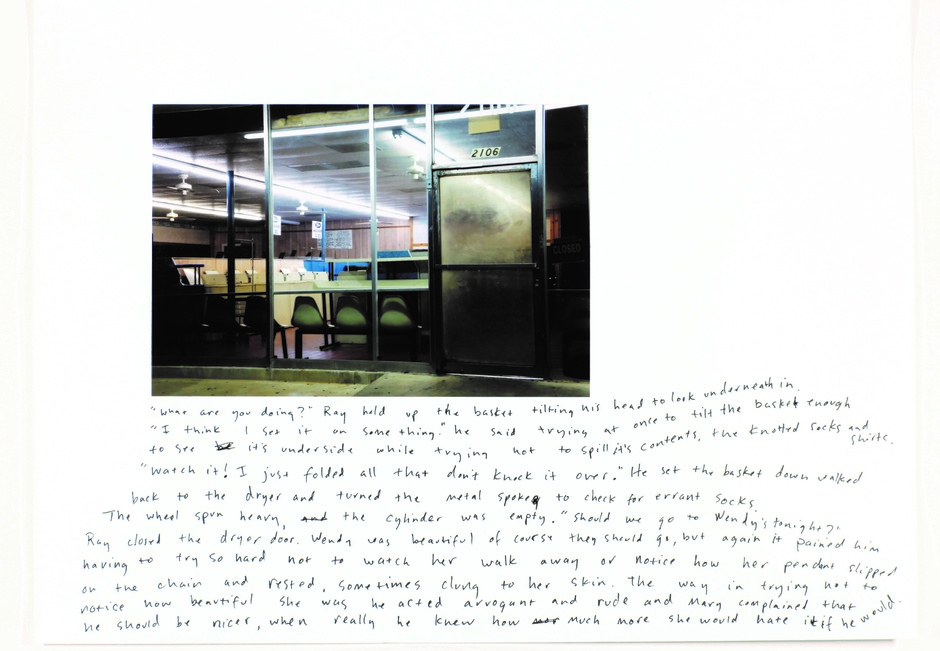 2106
CLOSED
"what are you doing?" Ray held up the basket tilting his head to look underneath in.
"I think I set it on something." he said trying at once to tilt the basket enough
to see it's underside while trying not to spill it's contents, the knotted socks and
shirts.
"Watch it! I just folded all that don't knock it over." He set the basket down walked
back to the dryer and turned the metal spokes to check for errant socks.
The wheel spun heavy, and the cylinder was empty. "Should we go to Wendy's tonight?"
Ray closed the dryer door. Wendy was beautiful of course they should go, but again it pained him
having to try so hard not to watch her walk away or notice how her pendant slipped
on the chain and rested, sometimes clung to her skin. The way in trying not to
notice how beautiful she was he acted arrogant and rude and Mary complained that
he should be nicer, when really he knew how much more she would hate it if he would.